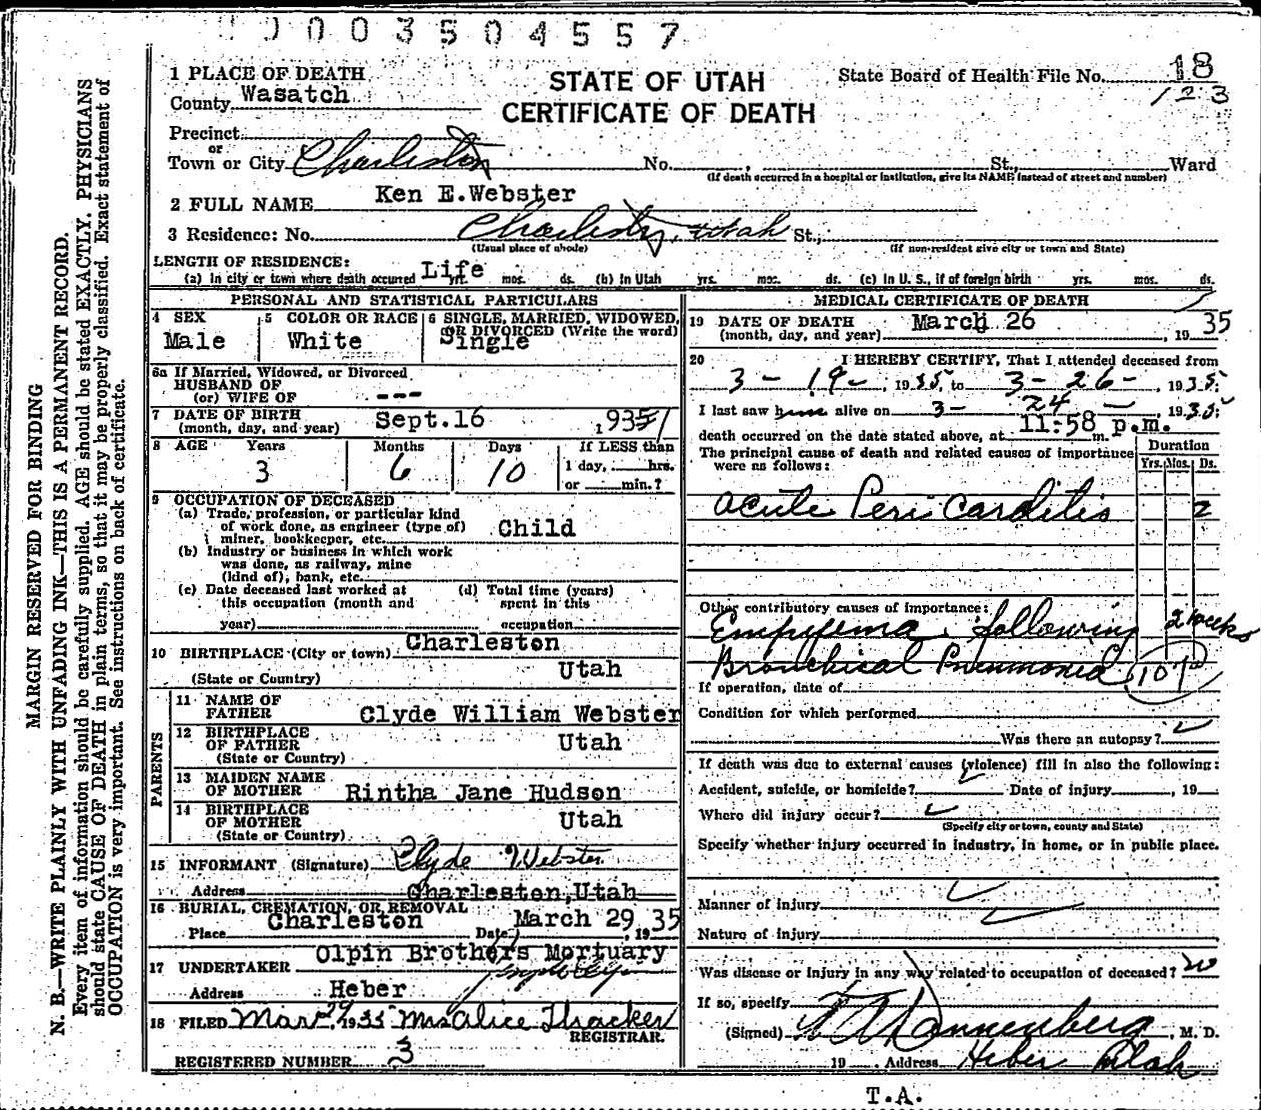 0003504557
STATE OF UTAH
CERTIFICATE OF DEATH
State Board of Health File No. 18
123
1 PLACE OF DEATH
County Wasatch
Precinct
or
Town or City Charleston No. , St., Ward
(If death occurred in a hospital or institution, give its NAME instead of street and number)
2 FULL NAME Ken E. Webster
3 Residence: No. Charleston, Utah St.,
(Usual place of abode) (If non-resident give city or town and State)
LENGTH OF RESIDENCE:
(a) In city or town where death occurred Life yrs. mos. ds. (b) In Utah yrs. mos. ds. (c) In U. S., if of foreign birth yrs. mos. ds.
PERSONAL AND STATISTICAL PARTICULARS
4 SEX
Male
5 COLOR OR RACE
White
6 SINGLE, MARRIED, WIDOWED,
OR DIVORCED (Write the word)
Single
6a If Married, Widowed, or Divorced
HUSBAND OF
(or) WIFE OF ---
7 DATE OF BIRTH
(month, day, and year) Sept.16 1931
8 AGE Years Months Days If LESS than
3 6 10 1 day, hrs.
or min.?
9 OCCUPATION OF DECEASED
(a) Trade, profession, or particular kind
of work done, as engineer (type of)
miner, bookkeeper, etc. Child
(b) Industry or business in which work
was done, as railway, mine
(kind of), bank, etc.
(c) Date deceased last worked at
this occupation (month and
year)
(d) Total time (years)
spent in this
occupation
10 BIRTHPLACE (City or town) Charleston
(State or Country) Utah
PARENTS
11 NAME OF
FATHER Clyde William Webster
12 BIRTHPLACE
OF FATHER Utah
(State or Country)
13 MAIDEN NAME
OF MOTHER Rintha Jane Hudson
14 BIRTHPLACE
OF MOTHER Utah
(State or Country)
15 INFORMANT (Signature) Clyde Webster
Address Charleston, Utah
16 BURIAL, CREMATION, OR REMOVAL
Place Charleston Date March 29, 1935
17 UNDERTAKER Olpin Brothers Mortuary
Address Heber
18 FILED Mar 29, 1935 Mrs Alice Thacker
REGISTRAR.
REGISTERED NUMBER 3
MEDICAL CERTIFICATE OF DEATH
19 DATE OF DEATH March 26
(month, day, and year) , 1935
20 I HEREBY CERTIFY, That I attended deceased from
3 - 19 - , 1935, to 3 - 26 - , 1935.
I last saw him alive on 3 - 24 - , 1935.
death occurred on the date stated above, at 11:58 p.m. m.
The principal cause of death and related causes of importance
were as follows:
Duration
Yrs. Mos. Ds.
Acute Peri Carditis 2
Other contributory causes of importance:
Empyema following 2 weeks
Bronchical Pneumonia 107
If operation, date of
Condition for which performed
Was there an autopsy?
If death was due to external causes (violence) fill in also the following:
Accident, suicide, or homicide? Date of injury , 19
Where did injury occur?
(Specify city or town, county and State)
Specify whether injury occurred in industry, in home, or in public place.
Manner of injury
Nature of injury
Was disease or injury in any way related to occupation of deceased? no
If so, specify
(Signed) Dannenberg, M. D.
19 Address Heber Utah
T.A.
MARGIN RESERVED FOR BINDING
N. B.—WRITE PLAINLY WITH UNFADING INK—THIS IS A PERMANENT RECORD.
Every item of information should be carefully supplied. AGE should be stated EXACTLY. PHYSICIANS
should state CAUSE OF DEATH in plain terms, so that it may be properly classified. Exact statement of
OCCUPATION is very important. See instructions on back of certificate.